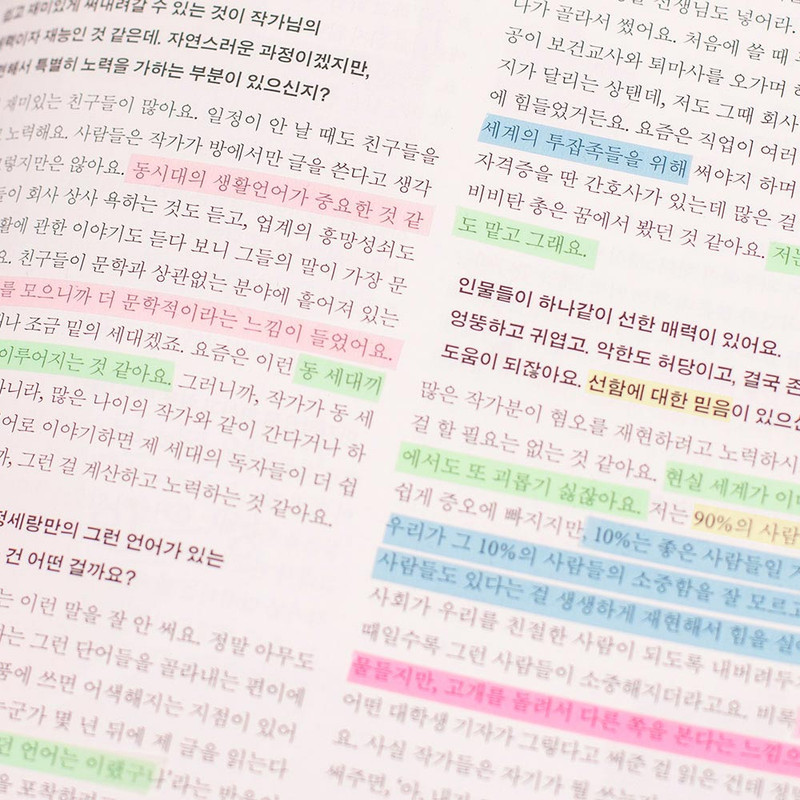 쉽고 재미있게 써내려갈 수 있는 것이 작가님의
매력이자 재능인 것 같은데. 자연스러운 과정이겠지만,
특별히 노력을 가하는 부분이 있으신지?
재미있는 친구들이 많아요. 일정이 안 날 때도 친구들을
노력해요. 사람들은 작가가 방에서만 글을 쓴다고 생각
그렇지만은 않아요. 동시대의 생활언어가 중요한 것 같
회사 상사 욕하는 것도 듣고, 업계의 흥망성쇠도
관한 이야기도 듣다 보니 그들의 말이 가장 문
요. 친구들이 문학과 상관없는 분야에 흩어져 있는
를 모으니까 더 문학적이라는 느낌이 들었어요.
조금 밑의 세대겠죠. 요즘은 이런 동 세대끼
이루어지는 것 같아요. 그러니까, 작가가 동 세
아니라, 많은 나이의 작가와 같이 간다거나 하
어로 이야기하면 제 세대의 독자들이 더 쉽
까, 그런 걸 계산하고 노력하는 것 같아요.
정세랑만의 그런 언어가 있는
건 어떤 걸까요?
는 이런 말을 잘 안 써요. 정말 아무도
그런 단어들을 골라내는 편이에
품에 쓰면 어색해지는 지점이 있어
누군가 몇 년 뒤에 제 글을 읽는다
언어는 이랬구나’라는 반응이
을 포착하려
선생님도 넣어라.
나가 골라서 썼어요. 처음에 쓸 때
공이 보건교사와 퇴마사를 오가며
지가 달리는 상탠데, 저도 그때 회사
에 힘들었거든요. 요즘은 직업이 여러
세계의 투잡족들을 위해 써야지 하며
자격증을 딴 간호사가 있는데 많은 걸
비비탄 총은 꿈에서 봤던 것 같아요. 저는
도 맡고 그래요.
인물들이 하나같이 선한 매력이 있어요.
엉뚱하고 귀엽고. 악한도 허당이고, 결국 존
도움이 되잖아요. 선함에 대한 믿음이 있으신
많은 작가분이 혐오를 재현하려고 노력하시
걸 할 필요는 없는 것 같아요. 현실 세계가 이미
에서도 또 괴롭기 싫잖아요. 저는 90%의 사람
쉽게 증오에 빠지지만, 10%는 좋은 사람들일
우리가 그 10%의 사람들의 소중함을 잘 모르고
사람들도 있다는 걸 생생하게 재현해서 힘을
사회가 우리를 친절한 사람이 되도록 내버려두
때일수록 그런 사람들이 소중해지더라고요. 비록
물들지만, 고개를 돌려서 다른 쪽을 본다는 느낌으
어떤 대학생 기자가 그렇다고 써준 걸 읽은 건데
요. 사실 작가들은 자기가 뭘 쓰는지
써주면, ‘아, 내가